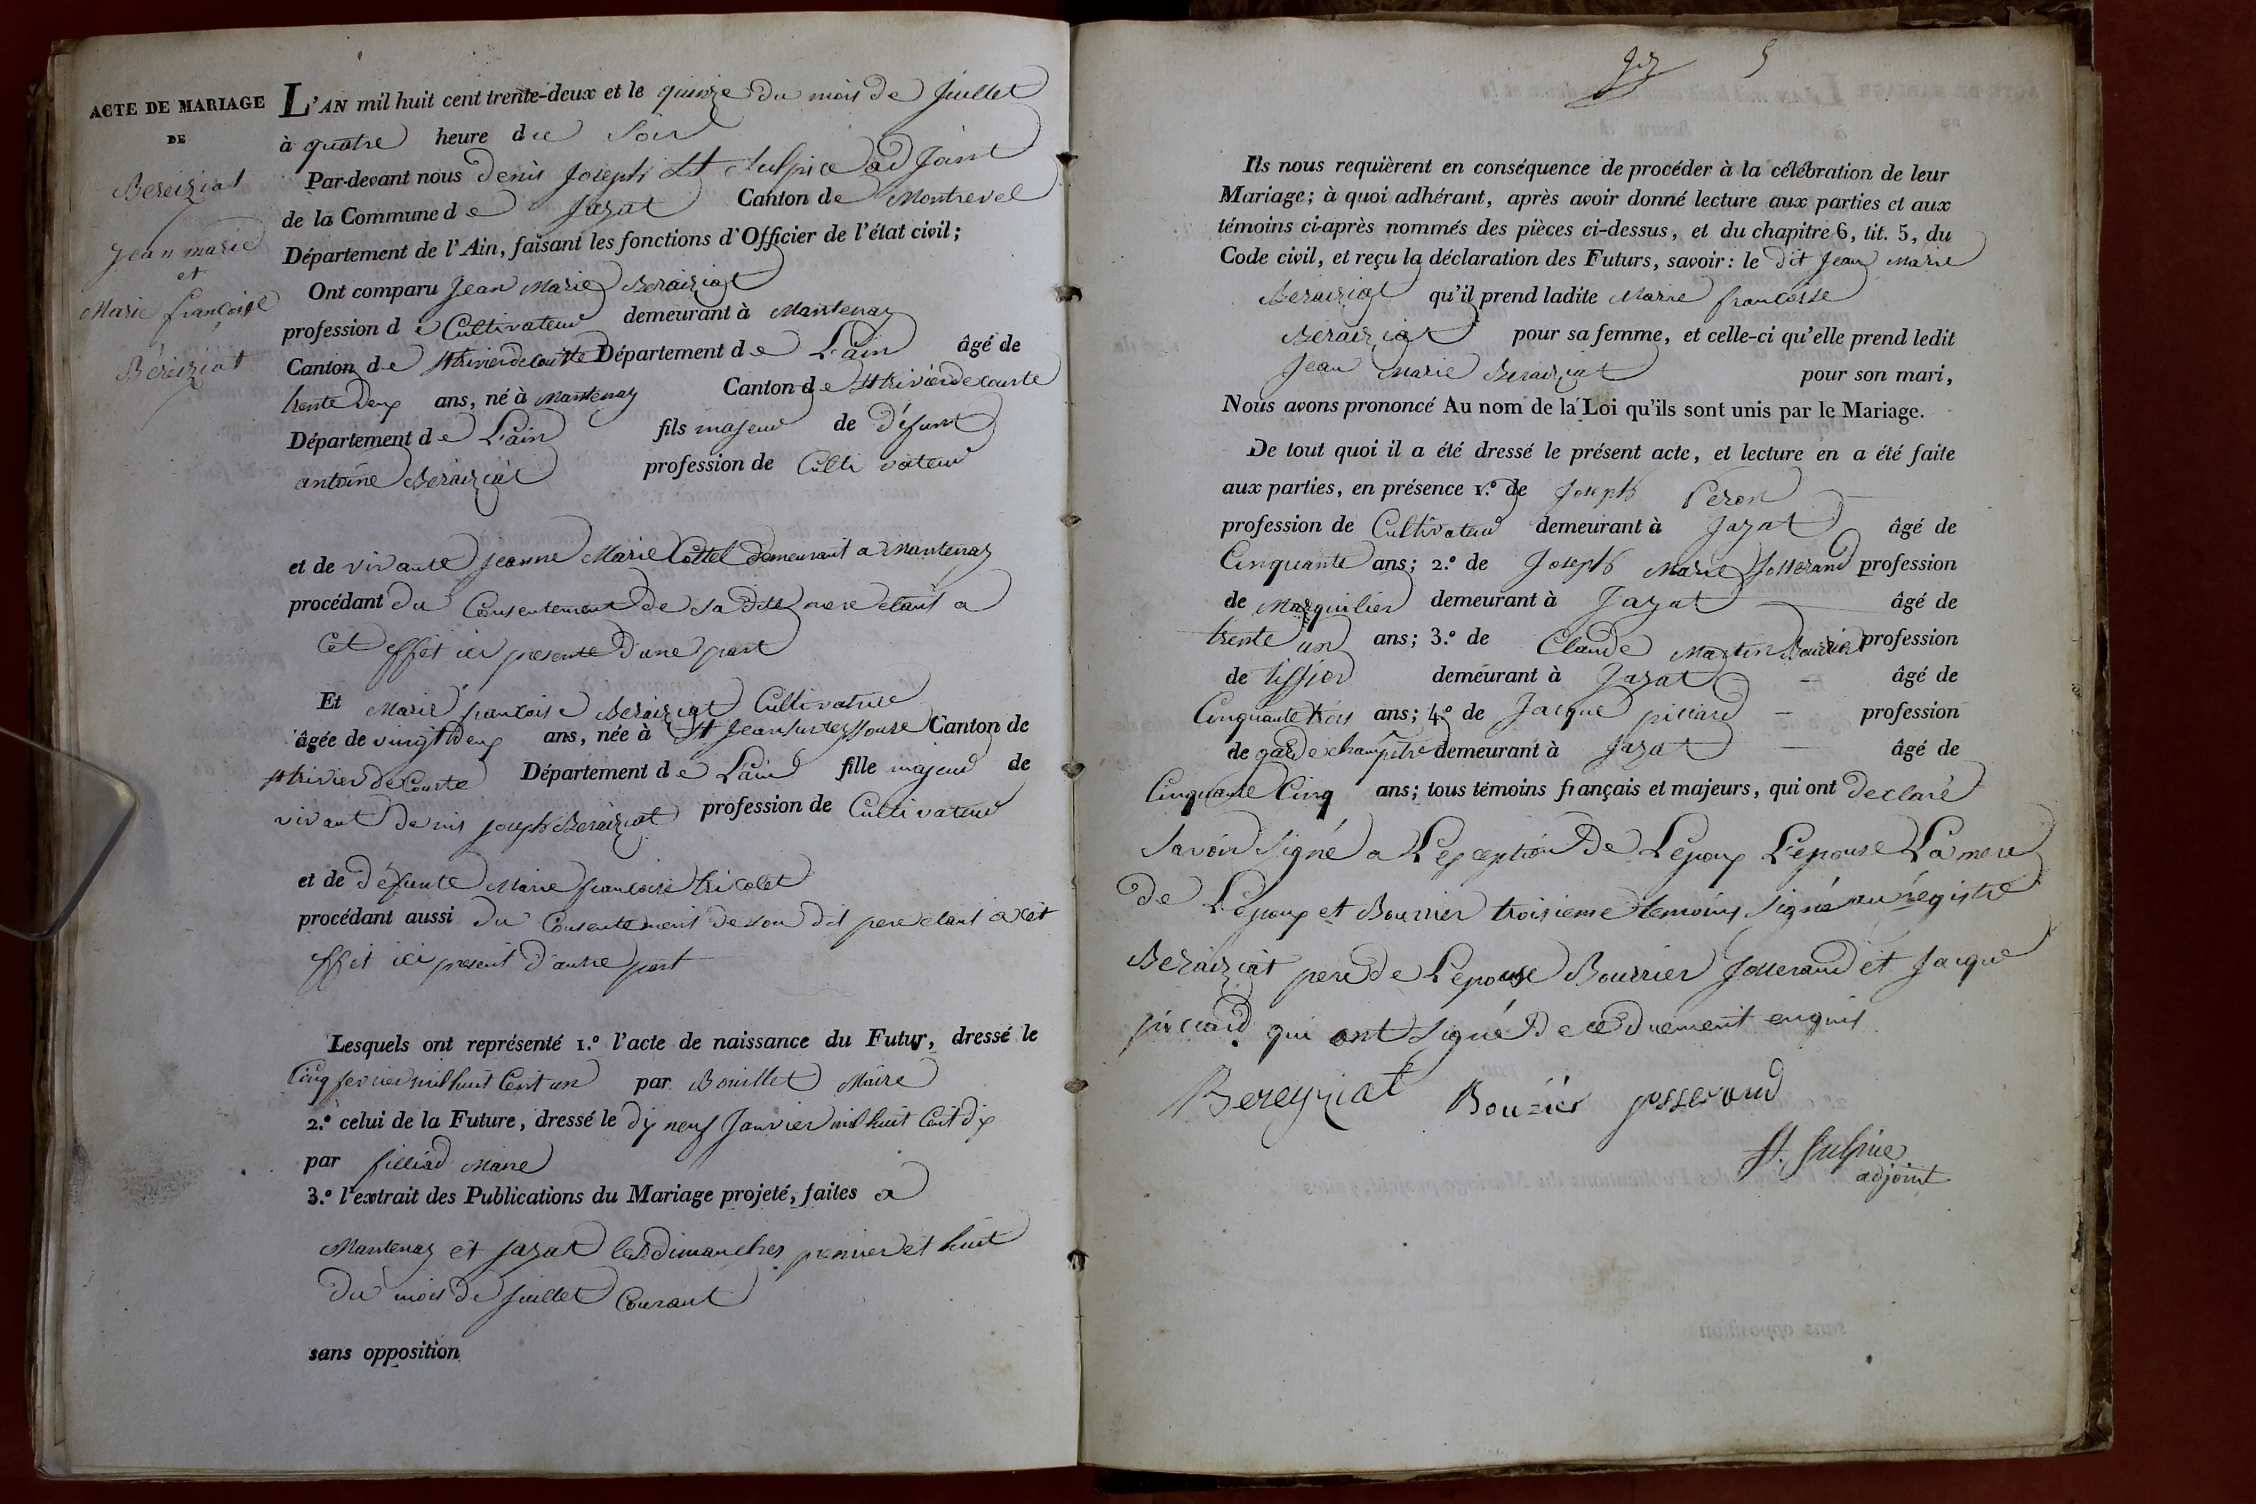 ACTE DE MARIAGE
DE
Bereiziat
Jean marie
et
Marie françoise
Béreiziat
L'AN mil huit cent trente-deux et le quinze du mois de Juillet
à quatre heure du Soir
Par-devant nous denis Joseph St Sulpice ad Joint
de la Commune de Jayat Canton de Montrevel
Département de l'Ain, faisant les fonctions d'Officier de l'état civil;
Ont comparu Jean Marie Beraiziat
profession de Cultivateur demeurant à Mantenay
Canton de St trivier de Courte Département de L'ain âgé de
trente deux ans, né à Mantenay Canton de St trivier de courte
Département de L'ain fils majeur de défunt
antoine Beraiziat profession de Culti vateur
et de vivante Jeanne Marie Cottel demeurant a Mantenay
procédant du Consentement de sa dite mere etant a
Cet effet ici presente d'une part
Et Marie françoise Beraiziat Cultivatrice
âgée de vingt deux ans, née à St Jean sur reyssouse Canton de
St trivier de Courte Département de L'ain fille majeur de
vivant denis joseph Beraiziat profession de Cultivateur
et de défunte Marie françoise tricolet
procédant aussi du Consentement de son dit pere etant a cet
effet ici present d'autre part
Lesquels ont représenté 1.º l'acte de naissance du Futur, dressé le
Cinq fevrier mil huit Cent un par Bouillet Maire
2.º celui de la Future, dressé le dix neuf Janvier mil huit Cent dix
par filliad Maire
3.º l'extrait des Publications du Mariage projeté, faites a
Mantenay et jayat les dimanches premier et huit
du mois de Juillet Courant
sans opposition
5
Ils nous requièrent en conséquence de procéder à la célébration de leur
Mariage; à quoi adhérant, après avoir donné lecture aux parties et aux
témoins ci-après nommés des pièces ci-dessus, et du chapitre 6, tit. 5, du
Code civil, et reçu la déclaration des Futurs, savoir: le dit Jean Marie
Beraiziat qu'il prend ladite Marie francoise
Beraiziat pour sa femme, et celle-ci qu'elle prend ledit
Jean Marie Beraiziat pour son mari,
Nous avons prononcé Au nom de la Loi qu'ils sont unis par le Mariage.
De tout quoi il a été dressé le présent acte, et lecture en a été faite
aux parties, en présence 1.º de Joseph Peron
profession de Cultivateur demeurant à Jayat âgé de
Cinquante ans; 2.º de Joseph Marie Josserand profession
de Marguilier demeurant à Jayat âgé de
trente un ans; 3.º de Claude Martin Bourier profession
de tissier demeurant à Jayat âgé de
Cinquante trois ans; 4.º de Jacque piccard profession
de garde champêtre demeurant à Jayat âgé de
Cinquante Cinq ans; tous témoins français et majeurs, qui ont declaré
savoir signé a L'exception de L'epoux L'epouse La mere
de L'epoux et Bourrier troisieme temoins signé au régistre
Beraiziat pere de L'epouse Bourrier Josserand et Jacque
piccard qui ont signé de ce duement enquis
Bereyziat Bouriér josserand
St. Sulpice
adjoint